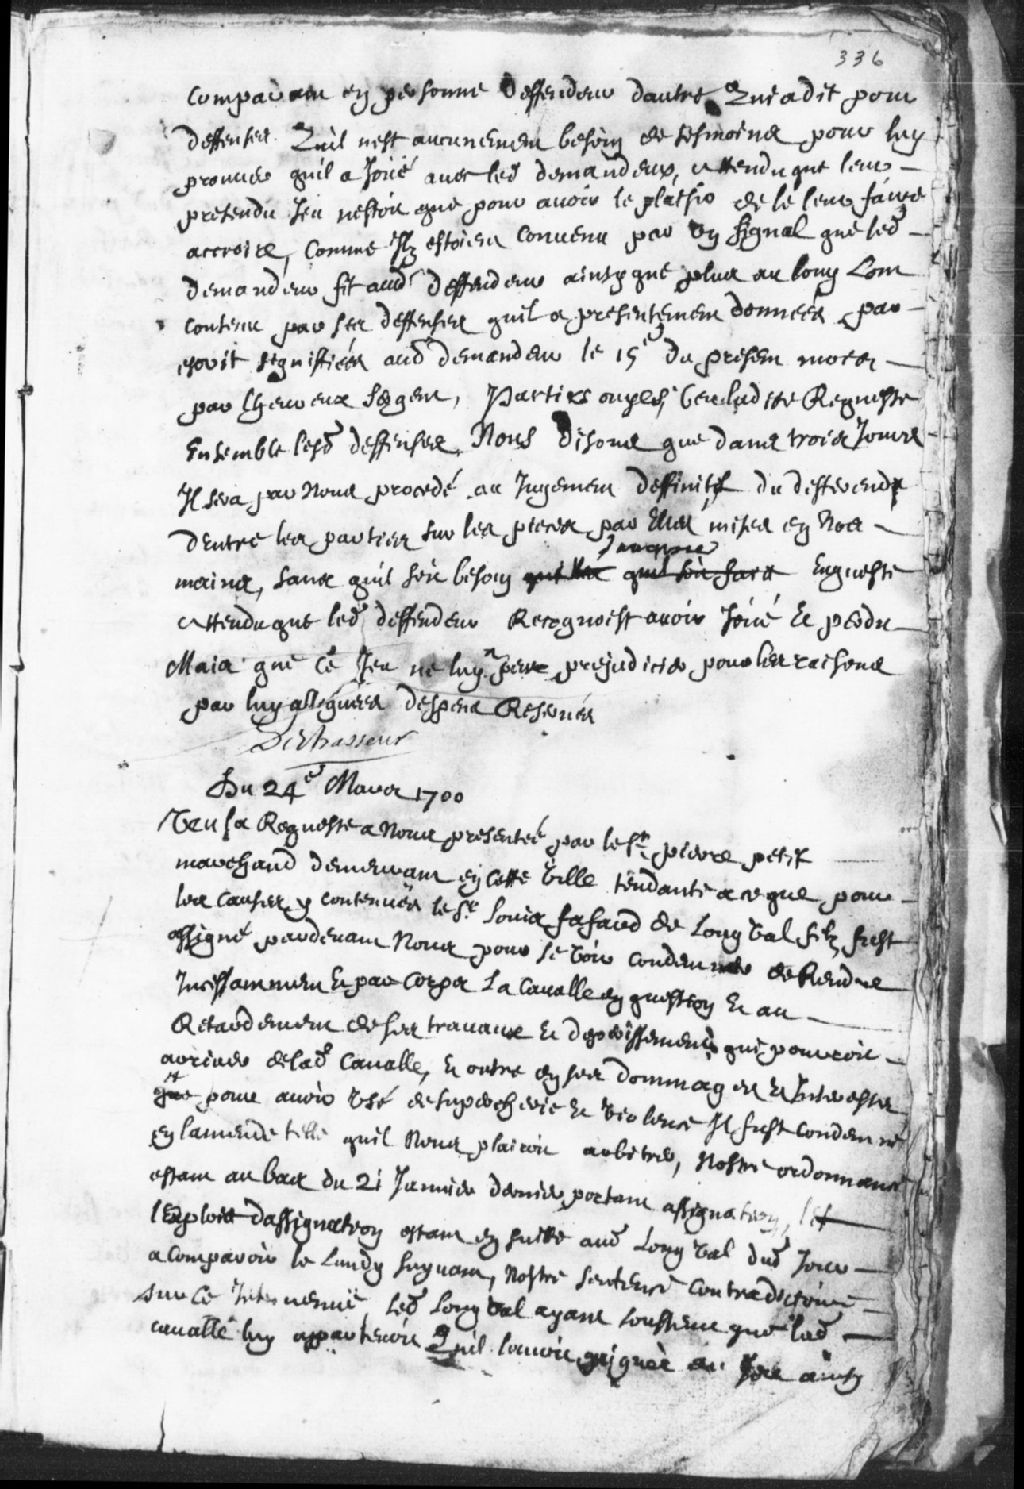 336
comparant en personne deffendeur dautre Qui a dit pour
deffenses Quil nest aucunement besoin de tesmoins pour luy
prouver quil a Joüé avec led demandeur, attendu que leur
pretendu Jeu nestoit que pour avoir le plaisir de le leur faire
accroire, Comme Ilz estoient convenu par un signal que led
demandeur fit aud deffendeur ainsy que plus au long Lon
contenu par ses deffenses quil a presentement données par
escrit signiffiées aud demandeur le 15e du present mois
par sergent, Parties ouyes, Veu ladite Requeste
Ensemble lesd deffenses, Nous disons que dans trois Jours
Il sera par Nous procedé au Jugement deffinitif du differend
dentre les parties sur les pieces par Elles mises en Nos
mains, sans quil soit besoin quil soit fait Enqueste
attendu que led deffendeur Recognoist avoir Joüé et perdu
Mais que ce Jeu ne luy peut prejudicier pour les raisons
par luy alleguées despens Reservés
Deschasseur
Du 24e Mars 1700
Veu la Requeste a Nous presentée par le Sr pierre petit
marchand demeurant en cette Ville tendante a ce que pour
les causes y contenües le Sr Louis fafard de Longval filz fust
assigné pardevant Nous pour se Voir condemner de Rendre
Incessamment Et par Corps La Cavalle en question Et au
Retardement de ses travaux Et deperissement qui pourroit
arriver de lad Cavalle, Et outre en ses dommages Et Interests
Et pour avoir Usé de supercherie Et violence Il fust condemné
en lamende telle quil Nous plairoit arbitrer, Nostre ordonnance
estant au bas du 21 Janvier dernier portant assignation,
lExploit dassignation estant en suitte aud Longval dud Jour
a comparoir le Lundy suyvant, Nostre sentence contradictoire
sur ce Intervenüe, led Longval ayant soustenu que lad
cavalle luy appartenoit Quil lavoit gaignée au Jeu ainsy